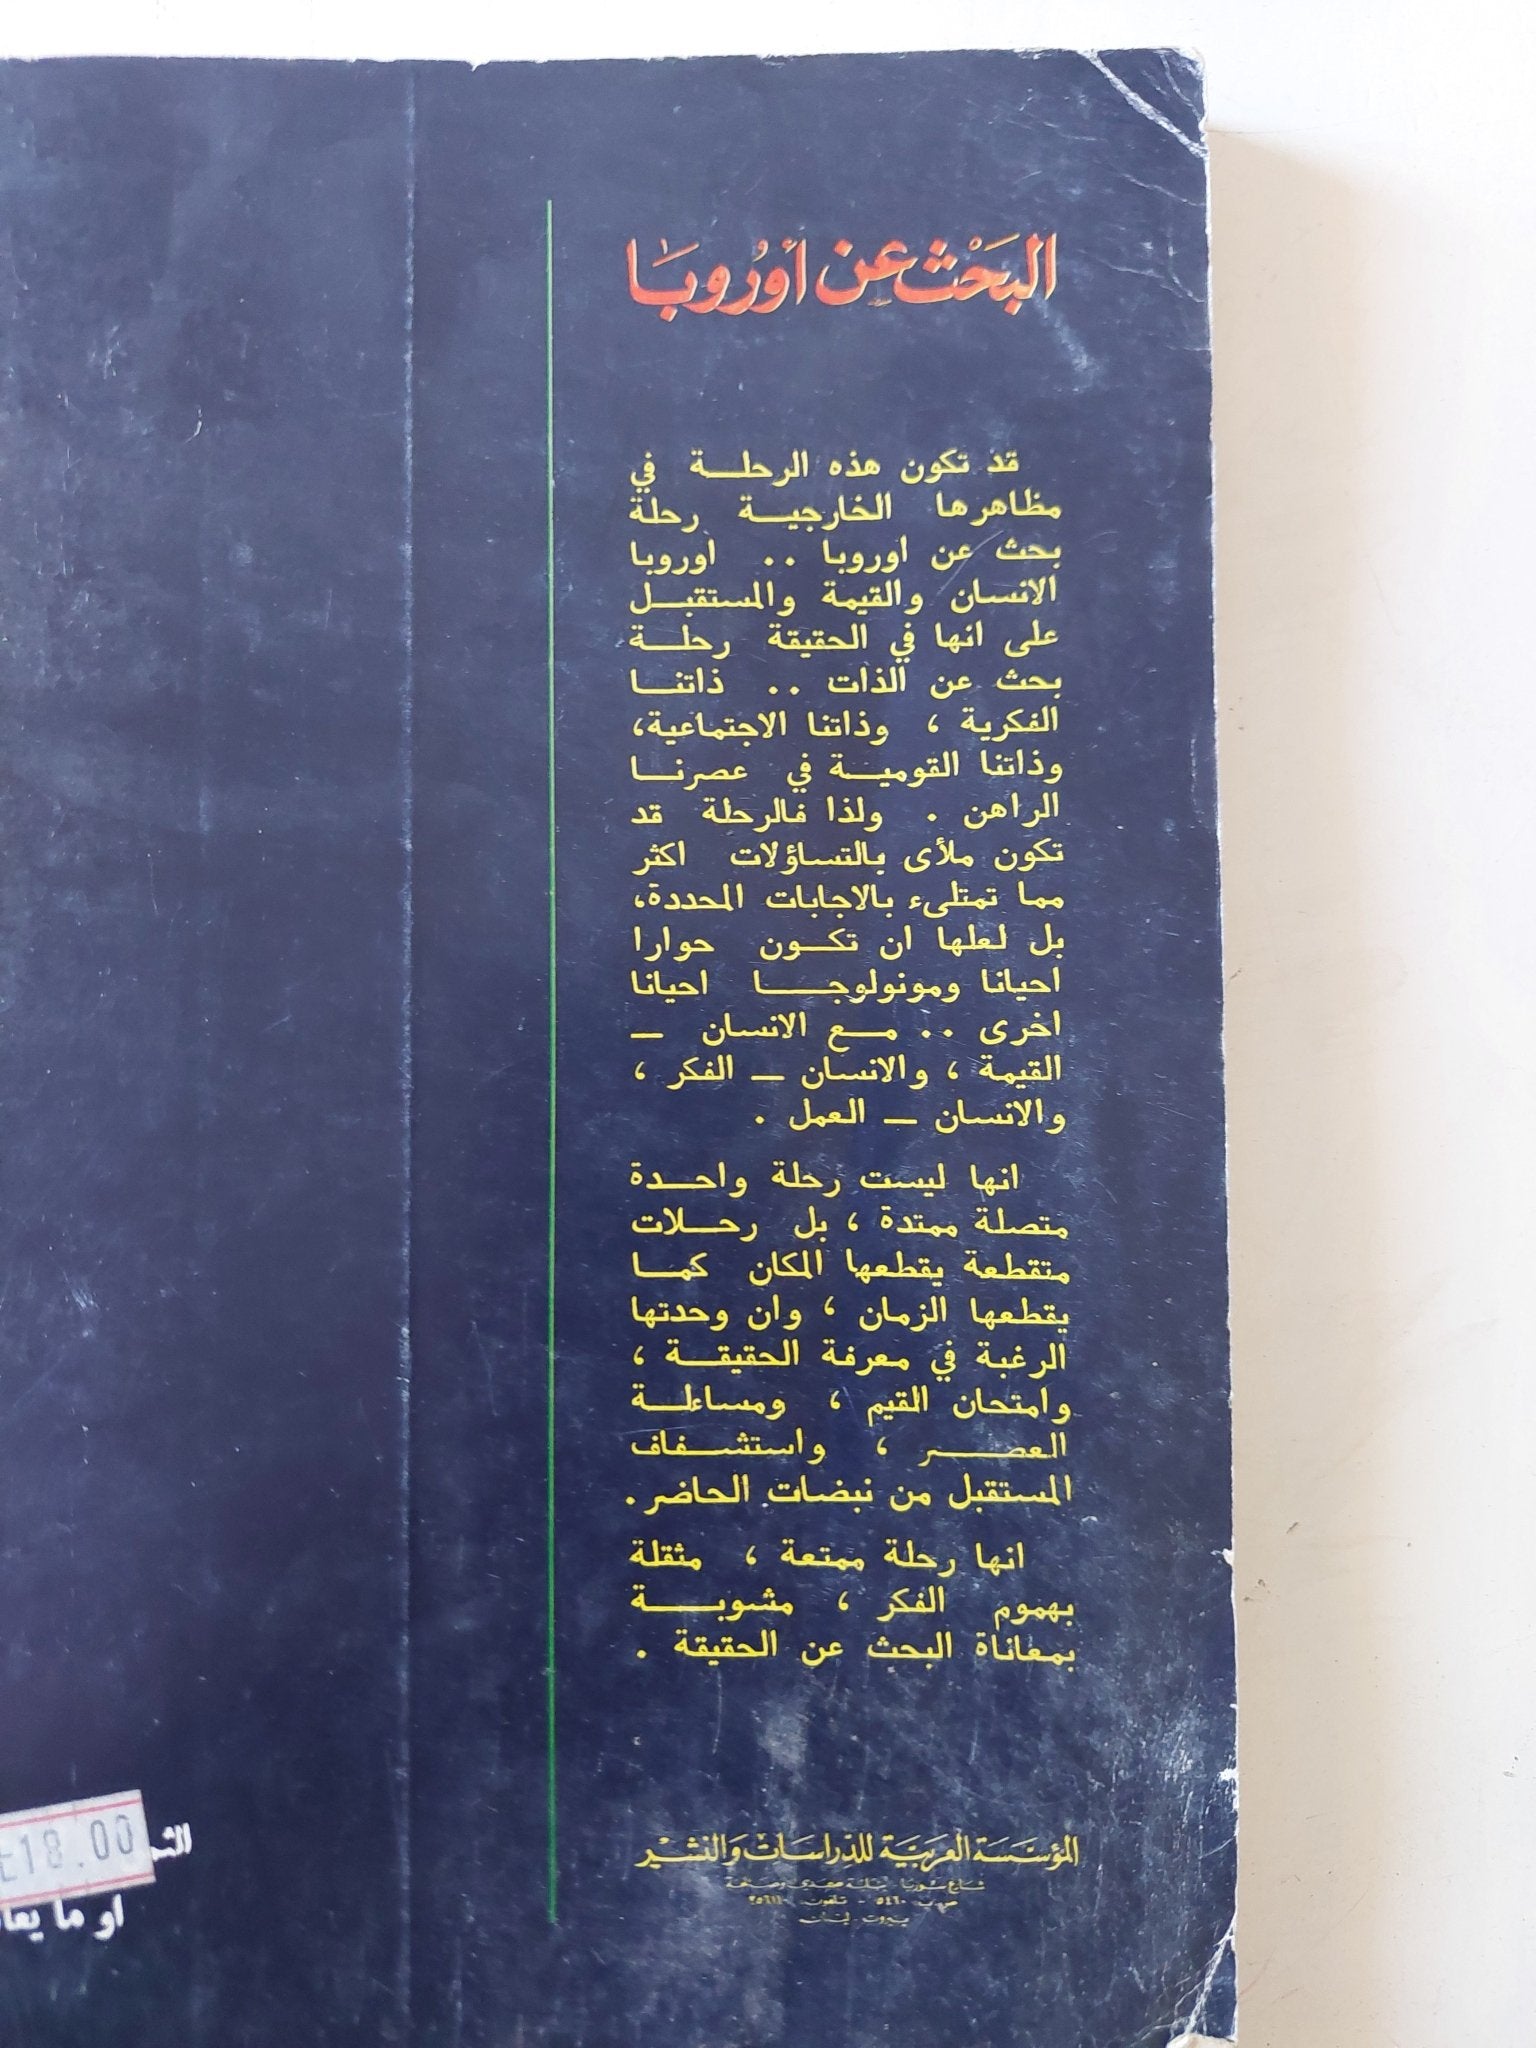 البَحْث عَن أوُروبَا
قد تكون هذه الرحلـــة في
مظاهرها الخارجيـــة رحلة
بحث عن اوروبا .. اوروبا
الانسان والقيمة والمستقبـل
على انها في الحقيقة رحلـــة
بحث عن الذات .. ذاتنـــا
الفكرية ، وذاتنا الاجتماعية،
وذاتنا القوميـــة في عصرنـــا
الراهن . ولذا فالرحلة قد
تكون ملأى بالتساؤلات اكثر
مما تمتلىء بالاجابات المحددة،
بل لعلها ان تكـــون حوارا
احيانا ومونولوجـــا احيانا
اخرى .. مـــع الانسان ـــ
القيمة ، والانسان ـــ الفكر ،
والانسان ـــ العمل .
انها ليست رحلة واحـــدة
متصلة ممتدة ، بل رحـــلات
متقطعة يقطعها المكان كمـــا
يقطعها الزمان ، وان وحدتها
الرغبة في معرفة الحقيقـــة ،
وامتحان القيم ، ومساءلـــة
العصـــر ، واستشـــفاف
المستقبل من نبضات الحاضر.
انها رحلة ممتعة ، مثقلة
بهموم الفكر ، مشوبـــة
بمعاناة البحث عن الحقيقة .
المؤسَّسَة العَرَبيَّة للدِّراسَات وَالنشْر
شارع سوريا - بناية صمدي وصالحة
ص.ب ٥٤٦٠ - تلفون
بيروت لبنان
18.00
او ما